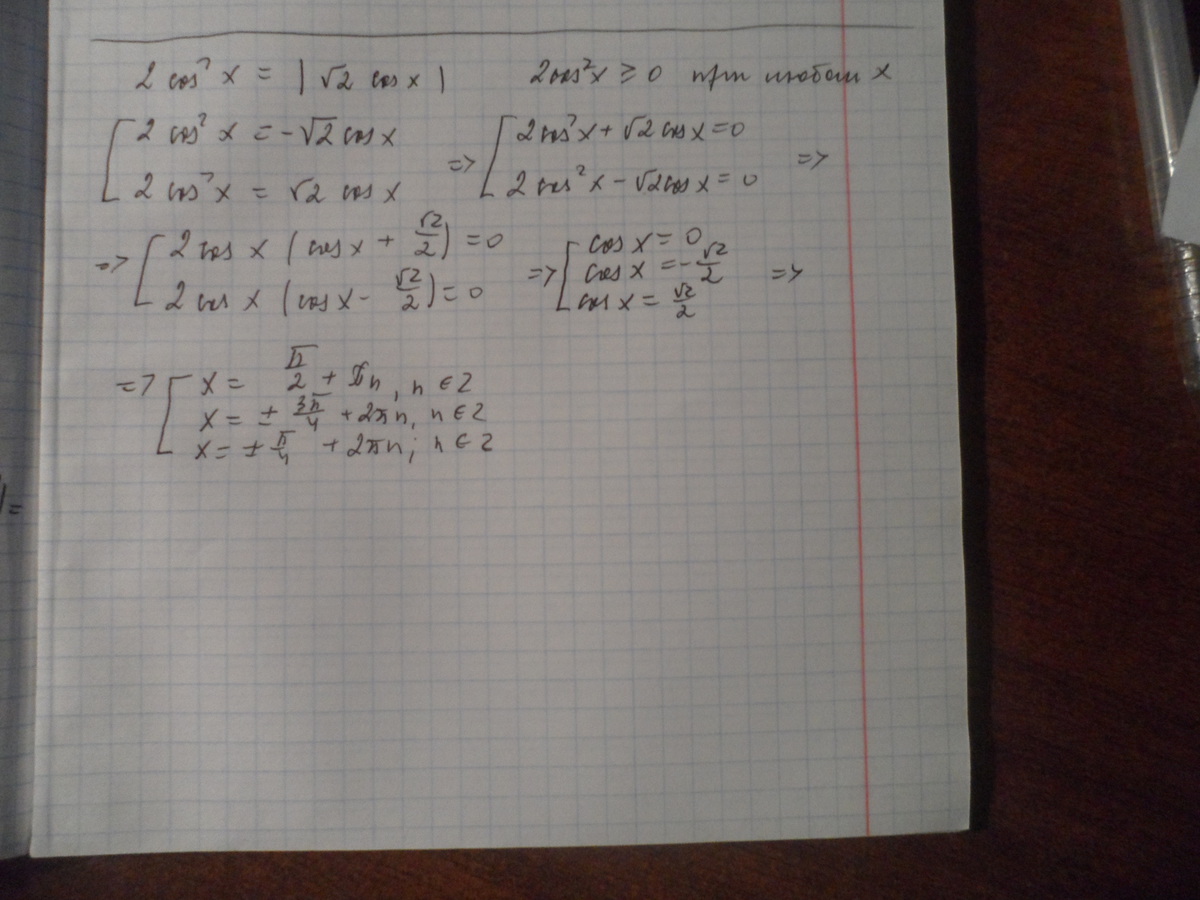 2 cos² x = | √2 cos x |     2cos²x ≥ 0 при любом x
[ 2 cos² x = -√2 cos x
[ 2 cos² x = √2 cos x
=> [ 2cos²x + √2 cos x = 0
[ 2cos²x - √2cos x = 0 =>
=> [ 2 cos x (cos x + √2/2) = 0
[ 2 cos x (cos x - √2/2) = 0
=> [ cos x = 0
[ cos x = -√2/2 =>
[ cos x = √2/2
=> [ x = π/2 + πn, n ∈ Z
[ x = ± 3π/4 + 2πn, n ∈ Z
[ x = ± π/4 + 2πn; n ∈ Z